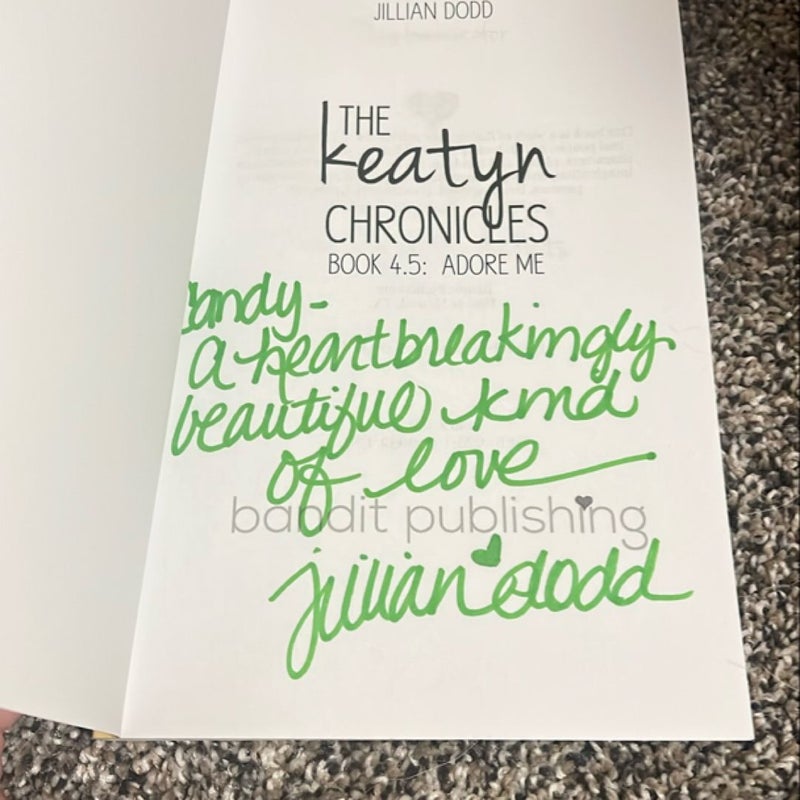 JILLIAN DODD
THE
keatyn
CHRONICLES
BOOK 4.5: ADORE ME
andy-
a heartbreakingly
beautiful kind
of love
bandit publishing
jillian dodd